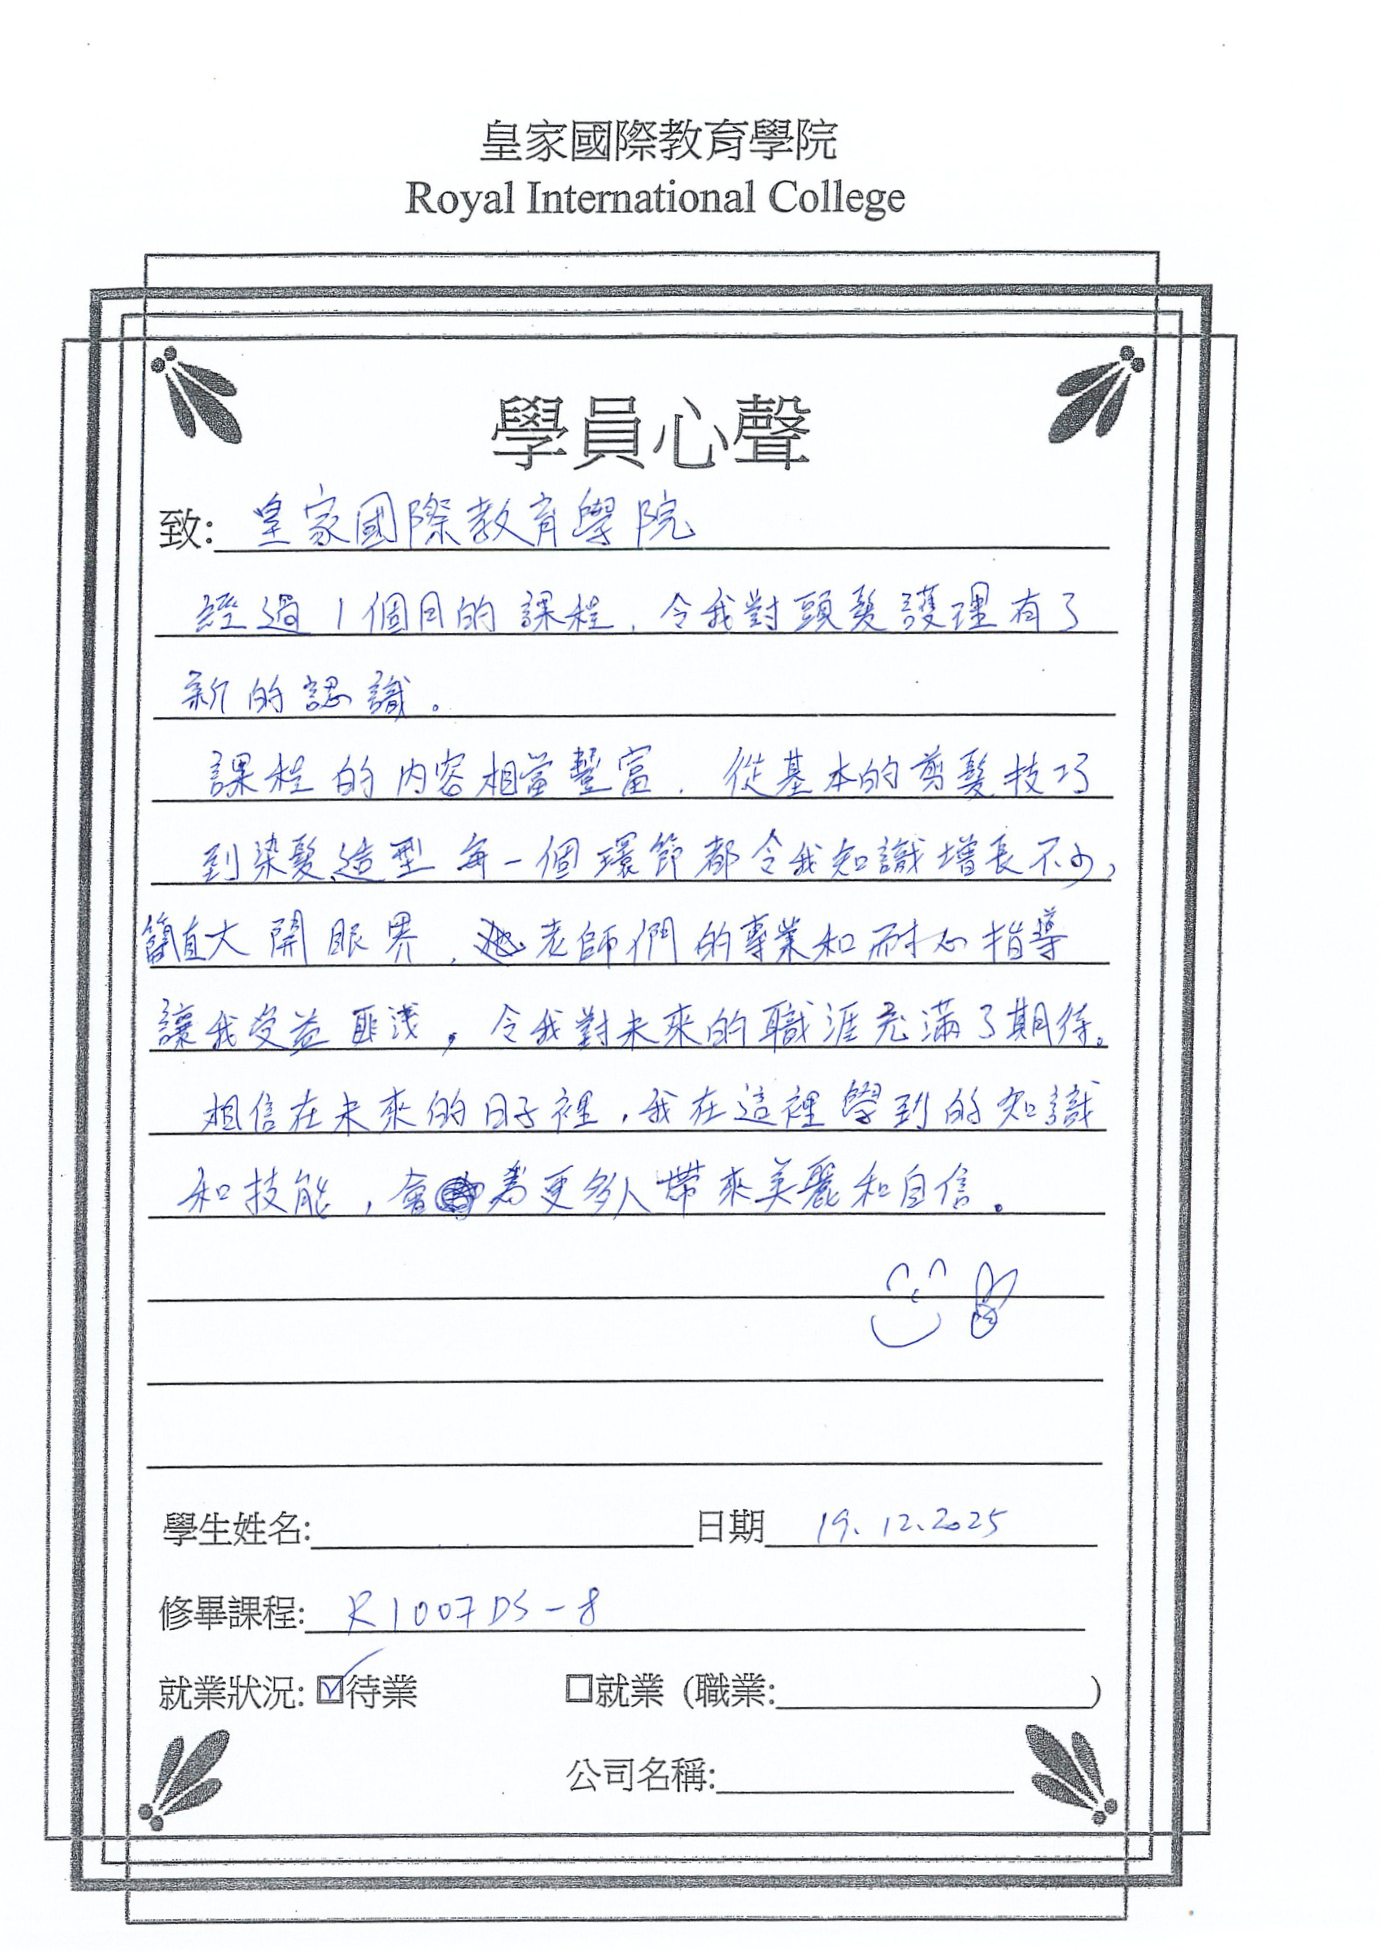 皇家國際教育學院
Royal International College
學員心聲
致: 皇家國際教育學院
經過1個月的課程，令我對頭髮護理有了
新的認識。
課程的內容相當豐富，從基本的剪髮技巧
到染髮造型每一個環節都令我知識增長不少，
簡直大開眼界，老師們的專業和耐心指導
讓我受益匪淺，令我對未來的職涯充滿了期待。
相信在未來的日子裡，我在這裡學到的知識
和技能，會為更多人帶來美麗和自信。
學生姓名: 日期 19.12.2025
修畢課程: R1007DS-8
就業狀況: ☑待業 □就業 (職業: )
公司名稱: